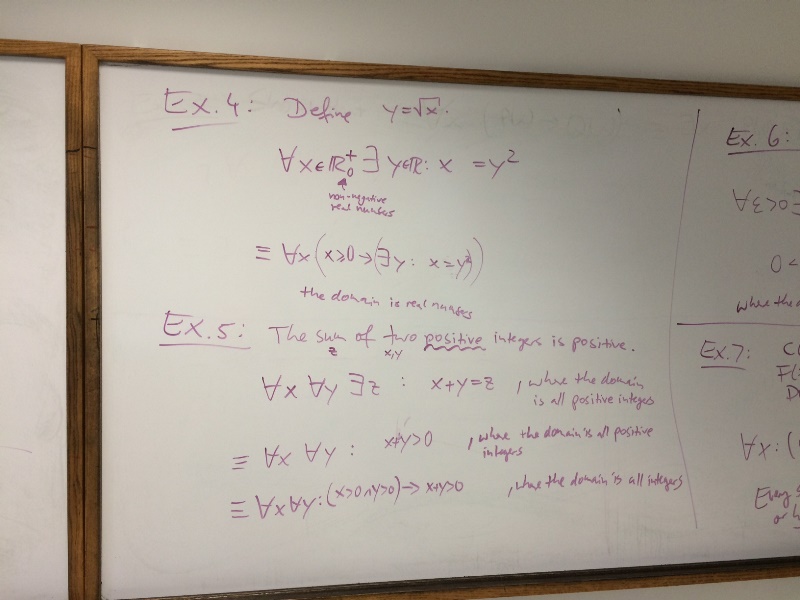 Ex.4: Define y=√x:
∀x∈ℝ₀⁺ ∃ y∈ℝ: x = y²
non-negative
real numbers
≡ ∀x (x≥0→(∃y: x=y²))
the domain is real numbers
Ex.5: The sum of two positive integers is positive.
z x,y
∀x ∀y ∃z : x+y=z , where the domain
is all positive integers
≡ ∀x ∀y : x+y>0 , where the domain is all positive
integers
≡ ∀x∀y:(x>0∧y>0)→ x+y>0 , where the domain is all integers
Ex. 6:
∀ε>0∃
0<
where the
Ex.7:
∀x:(
Every
or